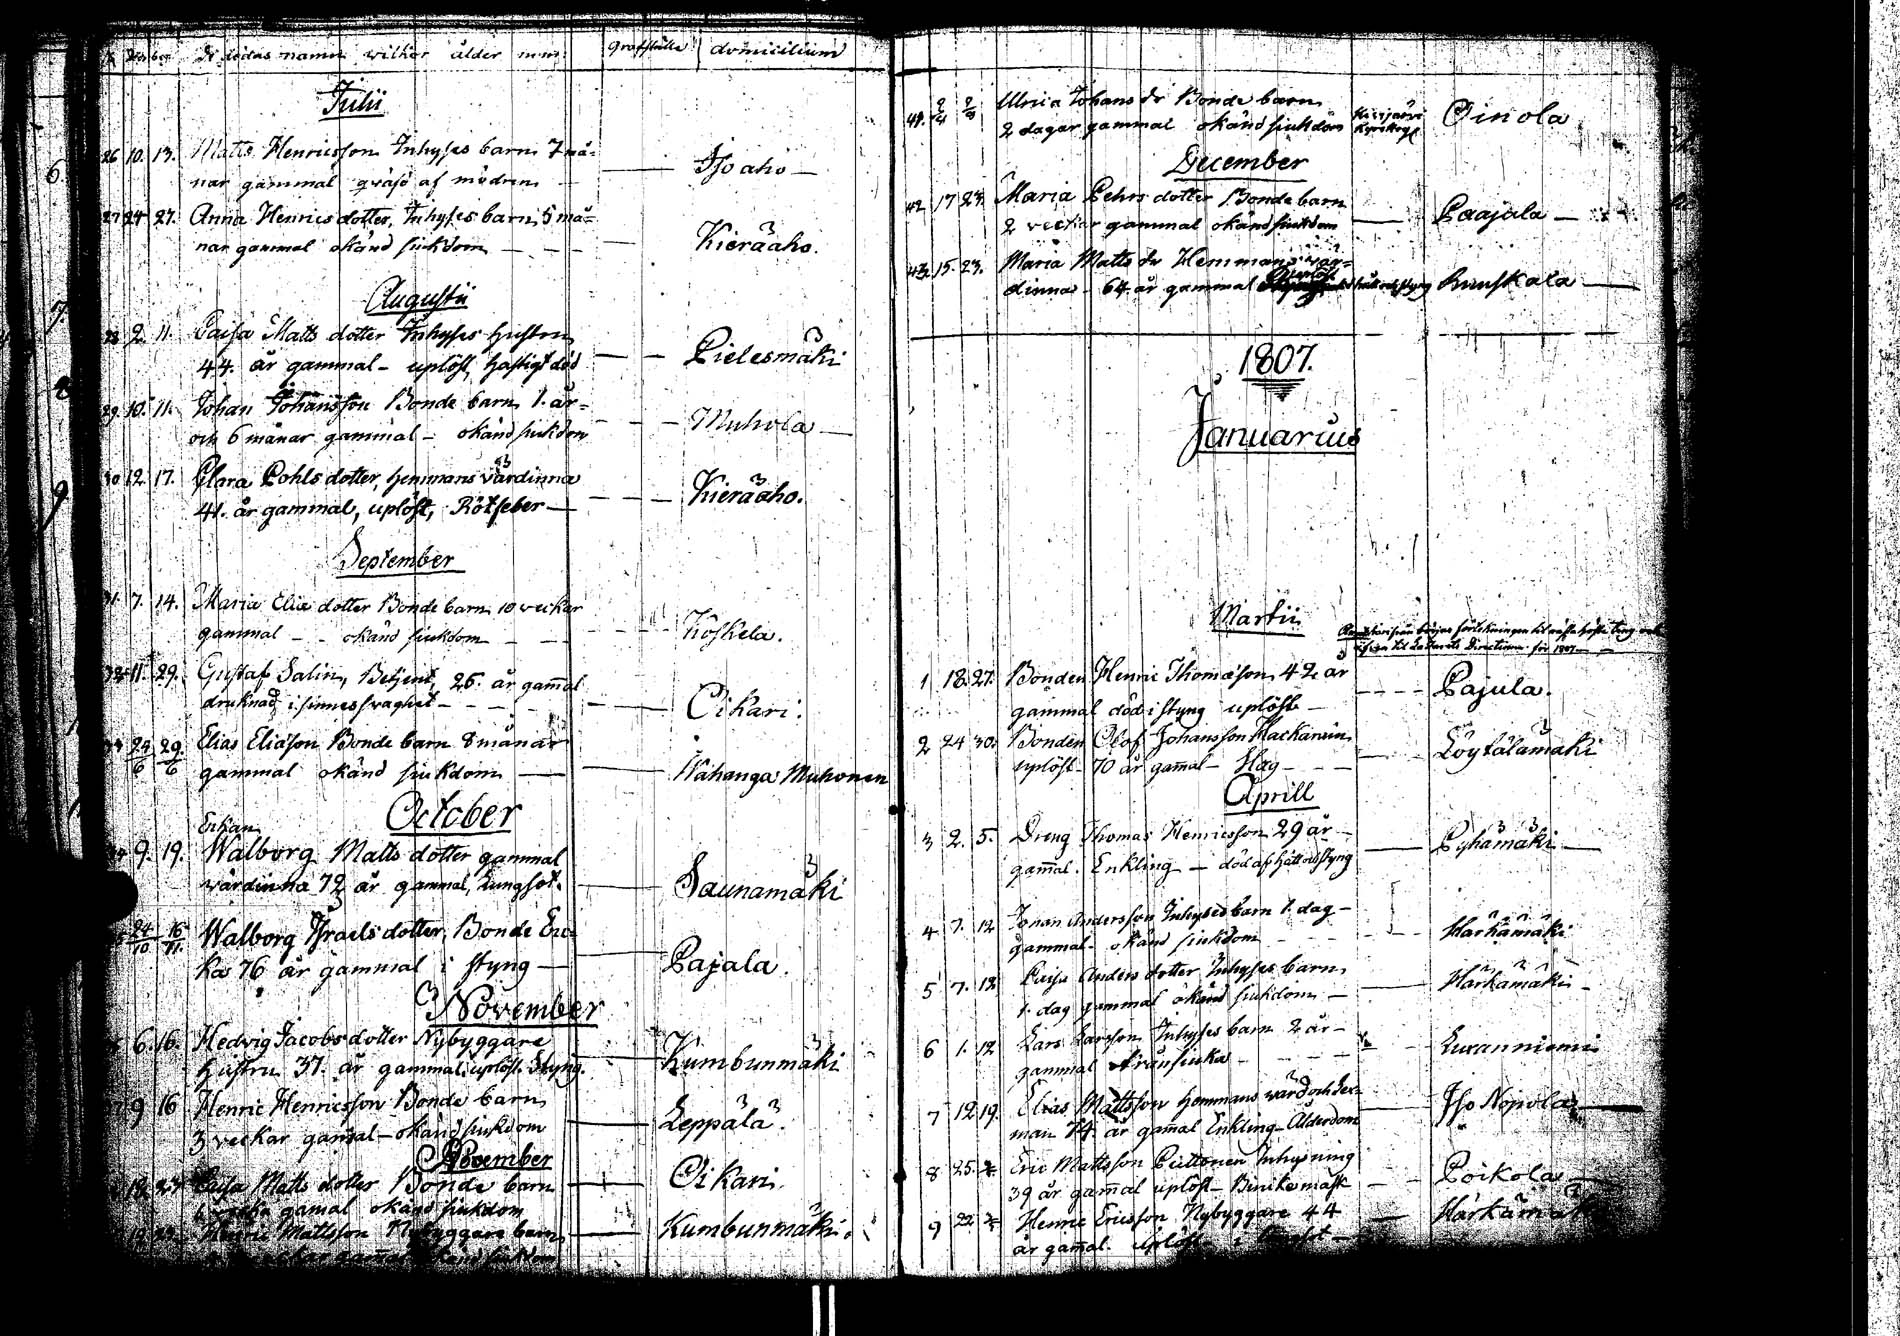 De dödas namn wilkor ålder m.m: grafställe domicilium
Julii
26 10. 13. Matts Henricsson Inhyses barn 7 må=
nar gammal qväfd af modren — Isoaho —
27 24 27. Anna Henricsdotter, Inhyses barn, 5 må=
nar gammal okänd siukdom — Kieräaho.
Augustii
28 2. 11. Caisa Matts dotter Inhyses hustru
44. år gammal — uplöst, hastigt död — Pielesmäki
29. 10. 11. Johan Johansson Bonde barn 1. år=
och 6 månar gammal — okänd siukdom — Muhola —
30 12. 17. Clara Pohls dotter, hemmans värdinna
41. år gammal, uplöst, Rötfeber — Kieräaho.
September
31. 7. 14. Maria Eliæ dotter Bonde barn 10 veckor
gammal — okänd siukdom — Koskela.
32 11. 29. Gustaf Salin, Betjent, 26. år gamal
druknad i sinnessvaghet — Oikari.
33 24/6 29/6 Elias Eliæson Bonde barn 8 månar
gammal okänd siukdom — Wahanga Muhonen
October
Enkan
34 9. 19. Walborg Matts dotter gammal
wärdinna 72 år gammal, Lungsot. — Saunamäki
24/10 16/11 Walborg Israels dotter, Bonde En=
ka 76 år gammal i styng — Pajala.
November
6. 16. Hedvig Jacobs dotter Nybyggare
hustru 37. år gammal. uplöst. Styng. — Kumbunmäki
9 16 Henric Henricsson Bonde barn
3 veckor gamal — okänd siukdom — Leppälä.
November
18. 23 Caisa Matts dotter Bonde barn
gamal okänd siukdom — Oikari.
Henric Mattsson Nybyggare barn — Kumbunmäki.
41. Ulrica Johans dr Bonde barn
2 dagar gammal okänd siukdom Kivijärvi Oinola
December
42 17 23. Maria Pehrs dotter Bonde barn
2 veckor gammal okänd siukdom — Paajala —
43 15. 23. Maria Matts dr Hemmans vär=
dinna — 64 år gammal uplöst — Ruuskala —
1807.
Januarius
Martii
1 18. 27. Bonden Henric Thomæson 42 år
gammal död i styng uplöst — Pajula.
2 24 30. Bonden Olof Johansson Hackarain
uplöst — 70 år gamal — Slag — Löytälämäki
Aprill
3 2. 5. Dreng Thomas Henricsson 29 år —
gamal. Enkling — död af håll och styng — Pyhämäki —
4 7. 12 Johan Andersson Inhyses barn 1. dag —
gammal — okänd siukdom — Härkämäki
5 7. 12 Caisa Anders dotter Inhyses barn
1. dag gammal okänd siukdom — Härkämäki —
6 1. 12 Lars Larsson Inhyses barn 2 år —
gammal — Luranniemi
7 12 19. Elias Mattsson Hemmans värd och Sex=
man 74. år gamal Enkling — Ålderdom — Iso Nopola
8 25. Eric Mattsson Piittonen Inhysning
39 år gamal uplöst — Binikemask — Poikola —
9 22 Henric Ericsson Nybyggare 44
år gamal. uplöst i — Härkämäki